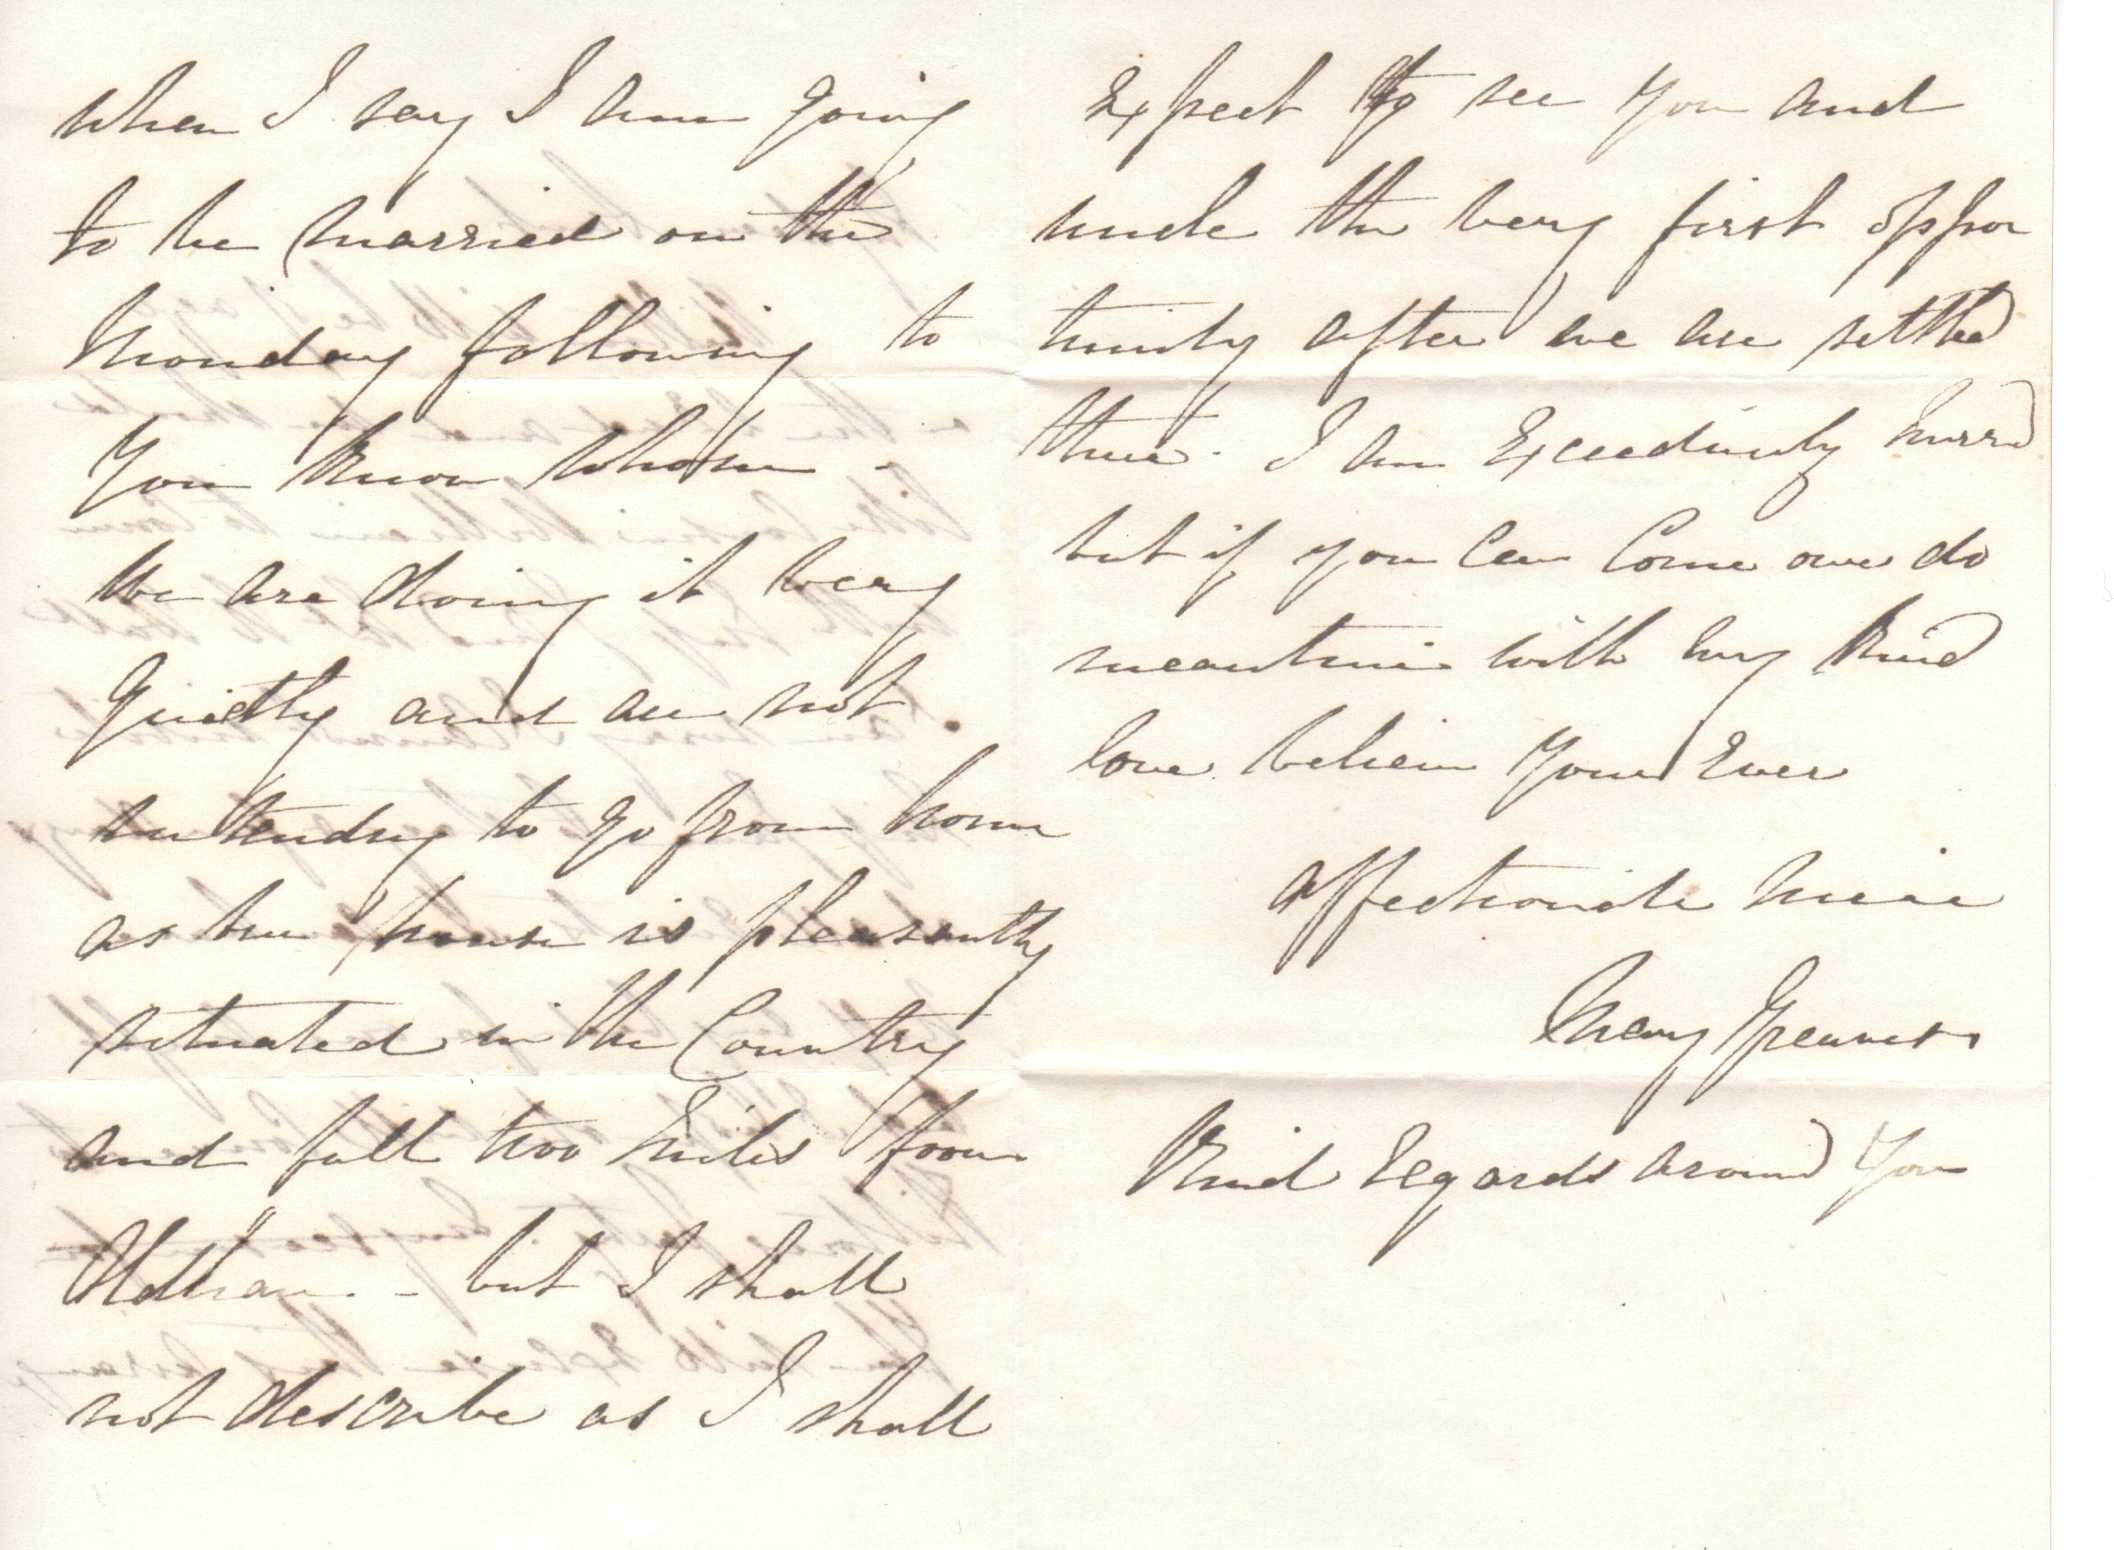 when I say I am going
to be married on the
Monday following to
You know whom -
We are doing it very
Quietly and are not
intending to go from home
as our house is pleasantly
situated in the Country
and full two Miles from
Oldham. - but I shall
not describe as I shall
Expect to see You and
uncle the very first oppor
tunity after we are settled
there. I am Exceedingly hurrd
but if you can Come over do
meantime with my kind
love believe Your Ever
affectionate Niece
Mary
Kind Regards around You